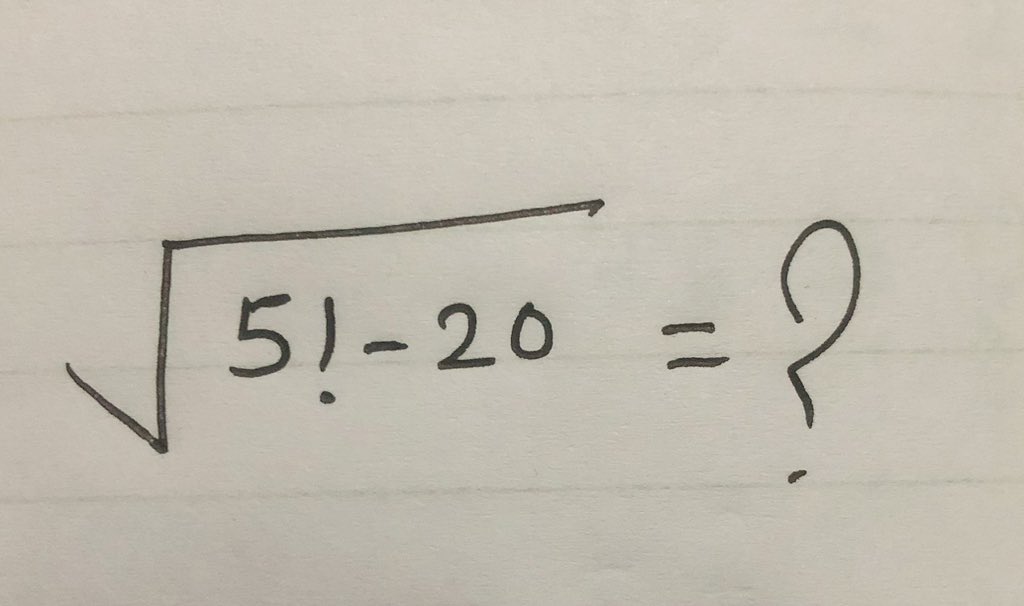 √(5!-20) = ?